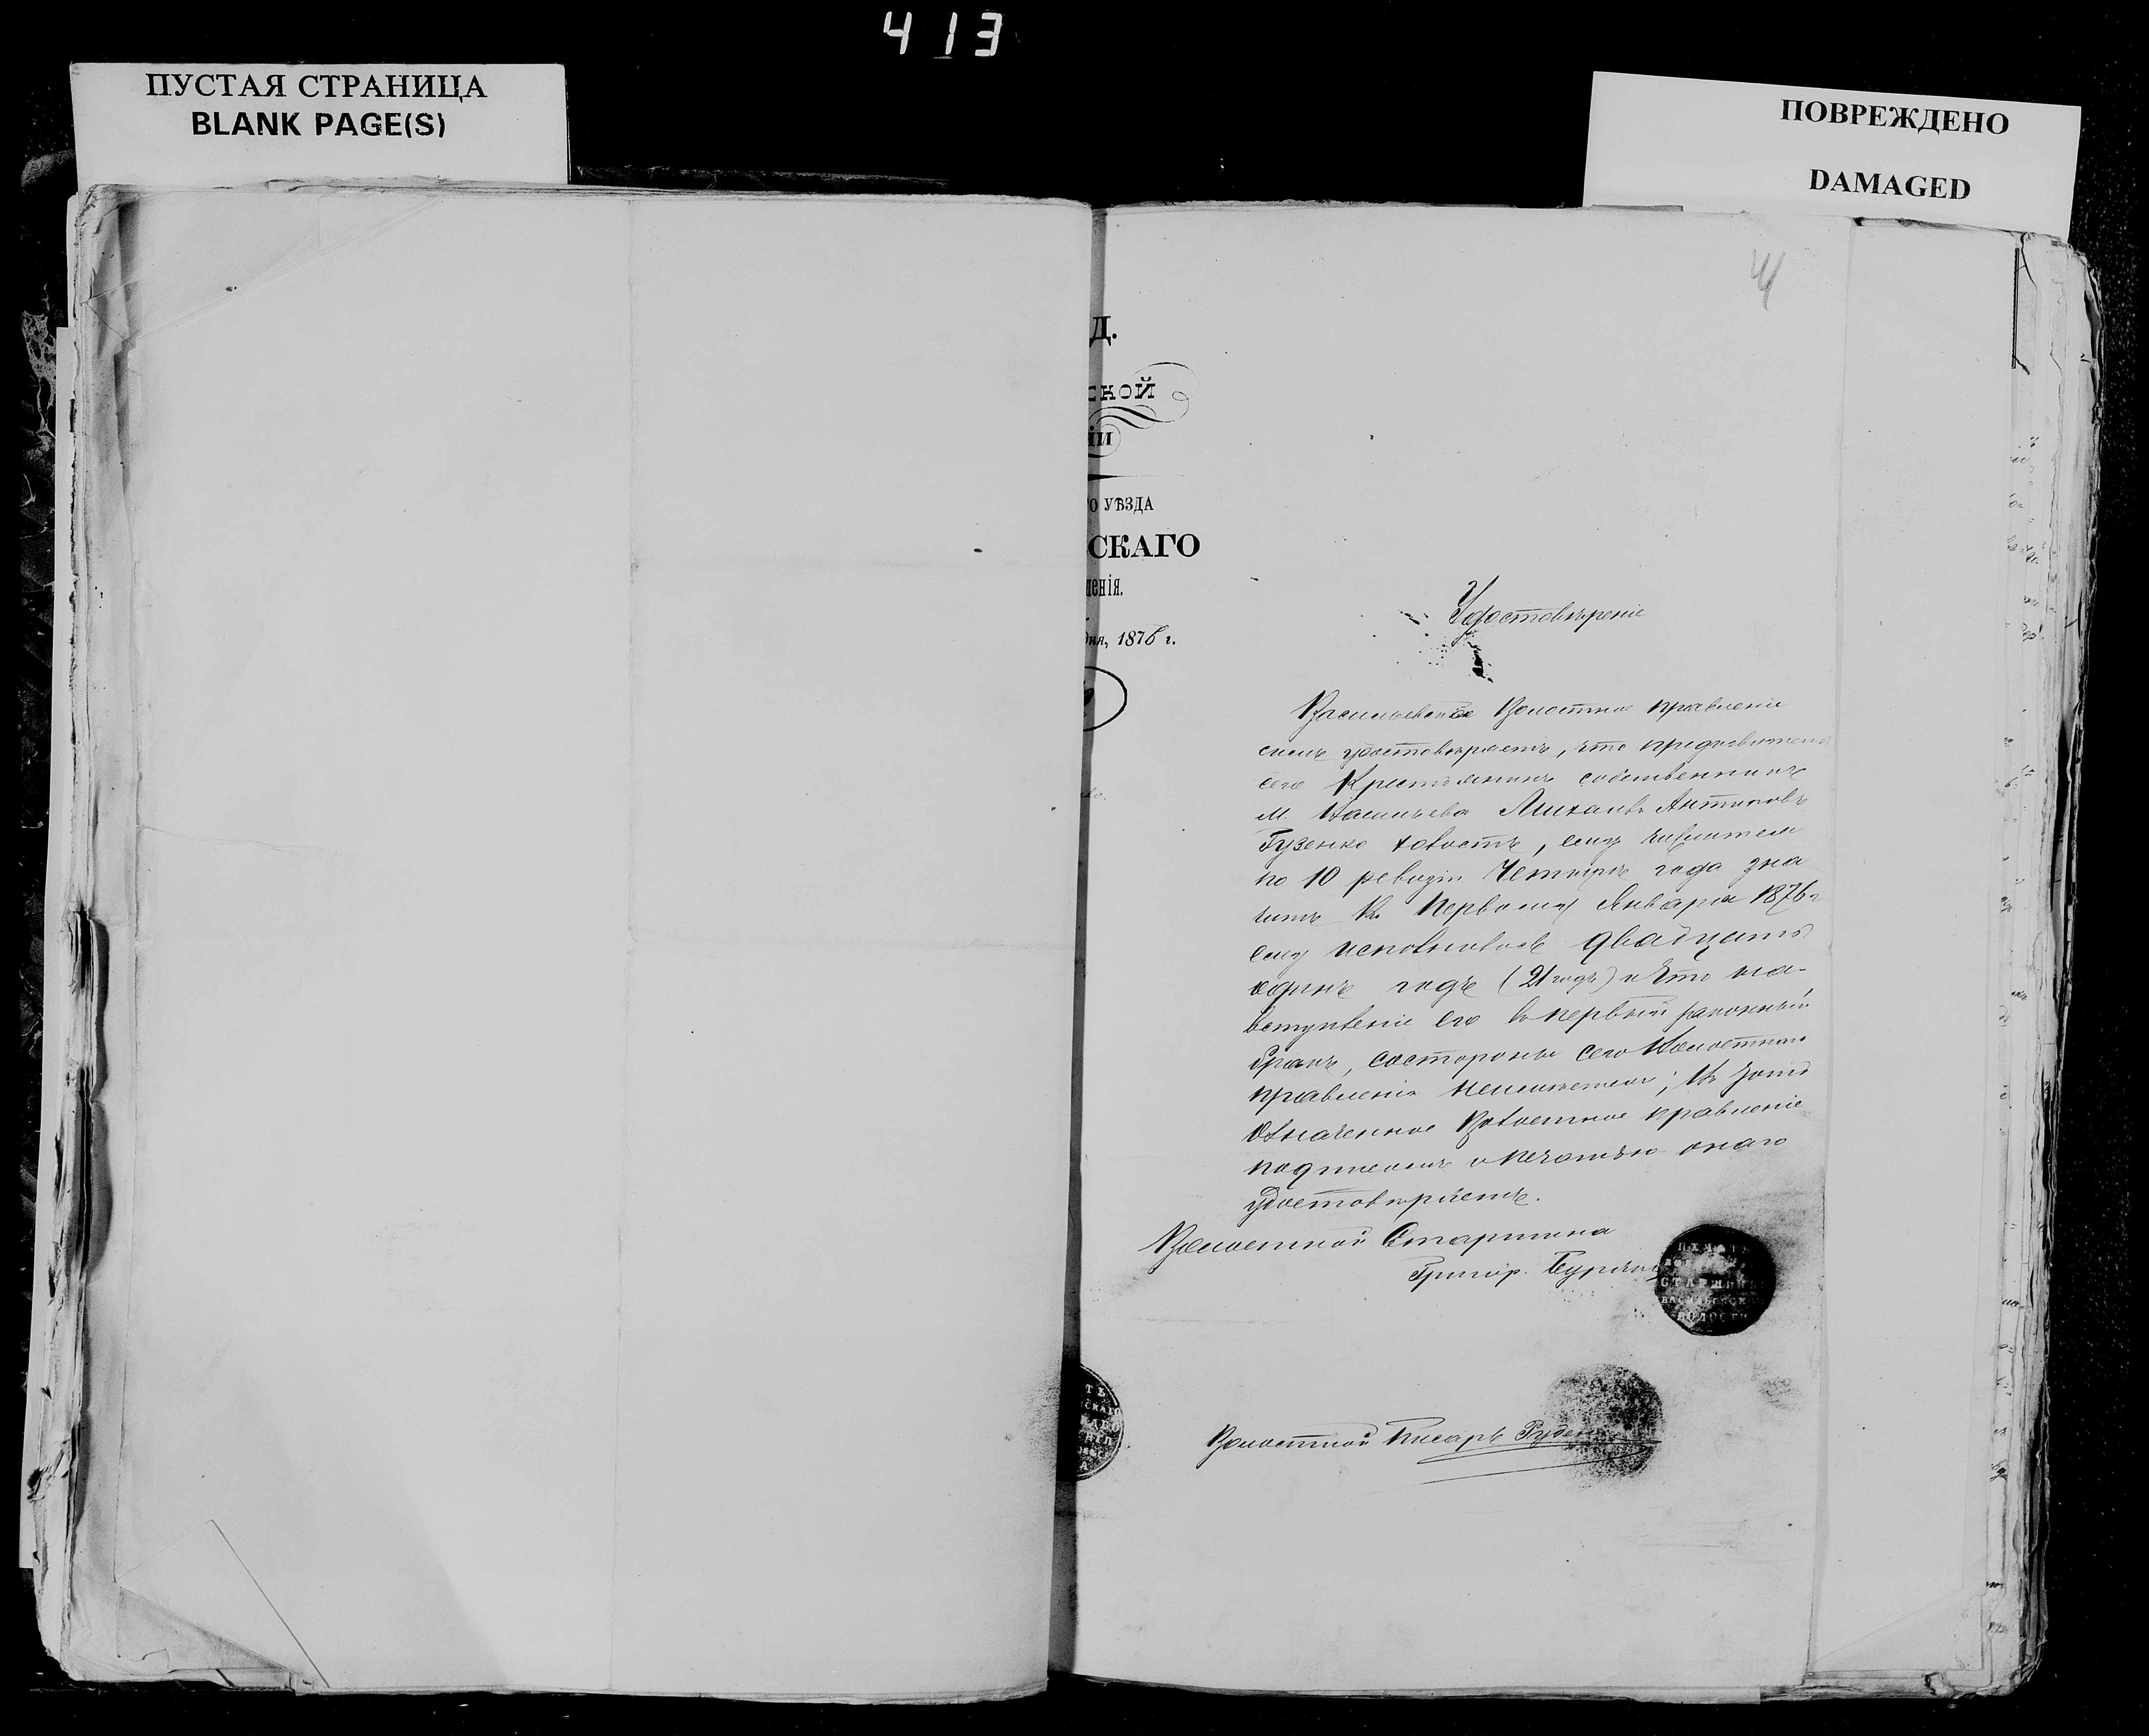 413
ПУСТАЯ СТРАНИЦА
BLANK PAGE(S)
ПОВРЕЖДЕНО
DAMAGED
4
Д.
ской
іи
го УѢЗДА
СКАГО
ленія.
дня, 1876 г.
Удостовѣреніе
Васильевское Волостное правленіе
симъ удостовѣряетъ, что предъявитель
сего Крестьянинъ собственникъ
м. Васильева Михаилъ Антиповъ
Гузенко холостъ, ему
по 10 ревизіи Четыре года зна
читъ къ Первому Января 1876 г
ему исполнилось двадцать
одинъ годъ (21 годъ) и что на
вступленіе его въ первый законный
бракъ, состороны сего Волостнаго
правленія ; въ чомъ
означенное Волостное правленіе
подписомъ и печатью онаго
удостовѣряетъ.
Волостной Старшина
Григор.
СТАРШИНЫ
ВАСИЛЬЕВСКОЙ
ВОЛОСТИ
Волостной Писарь Руденко